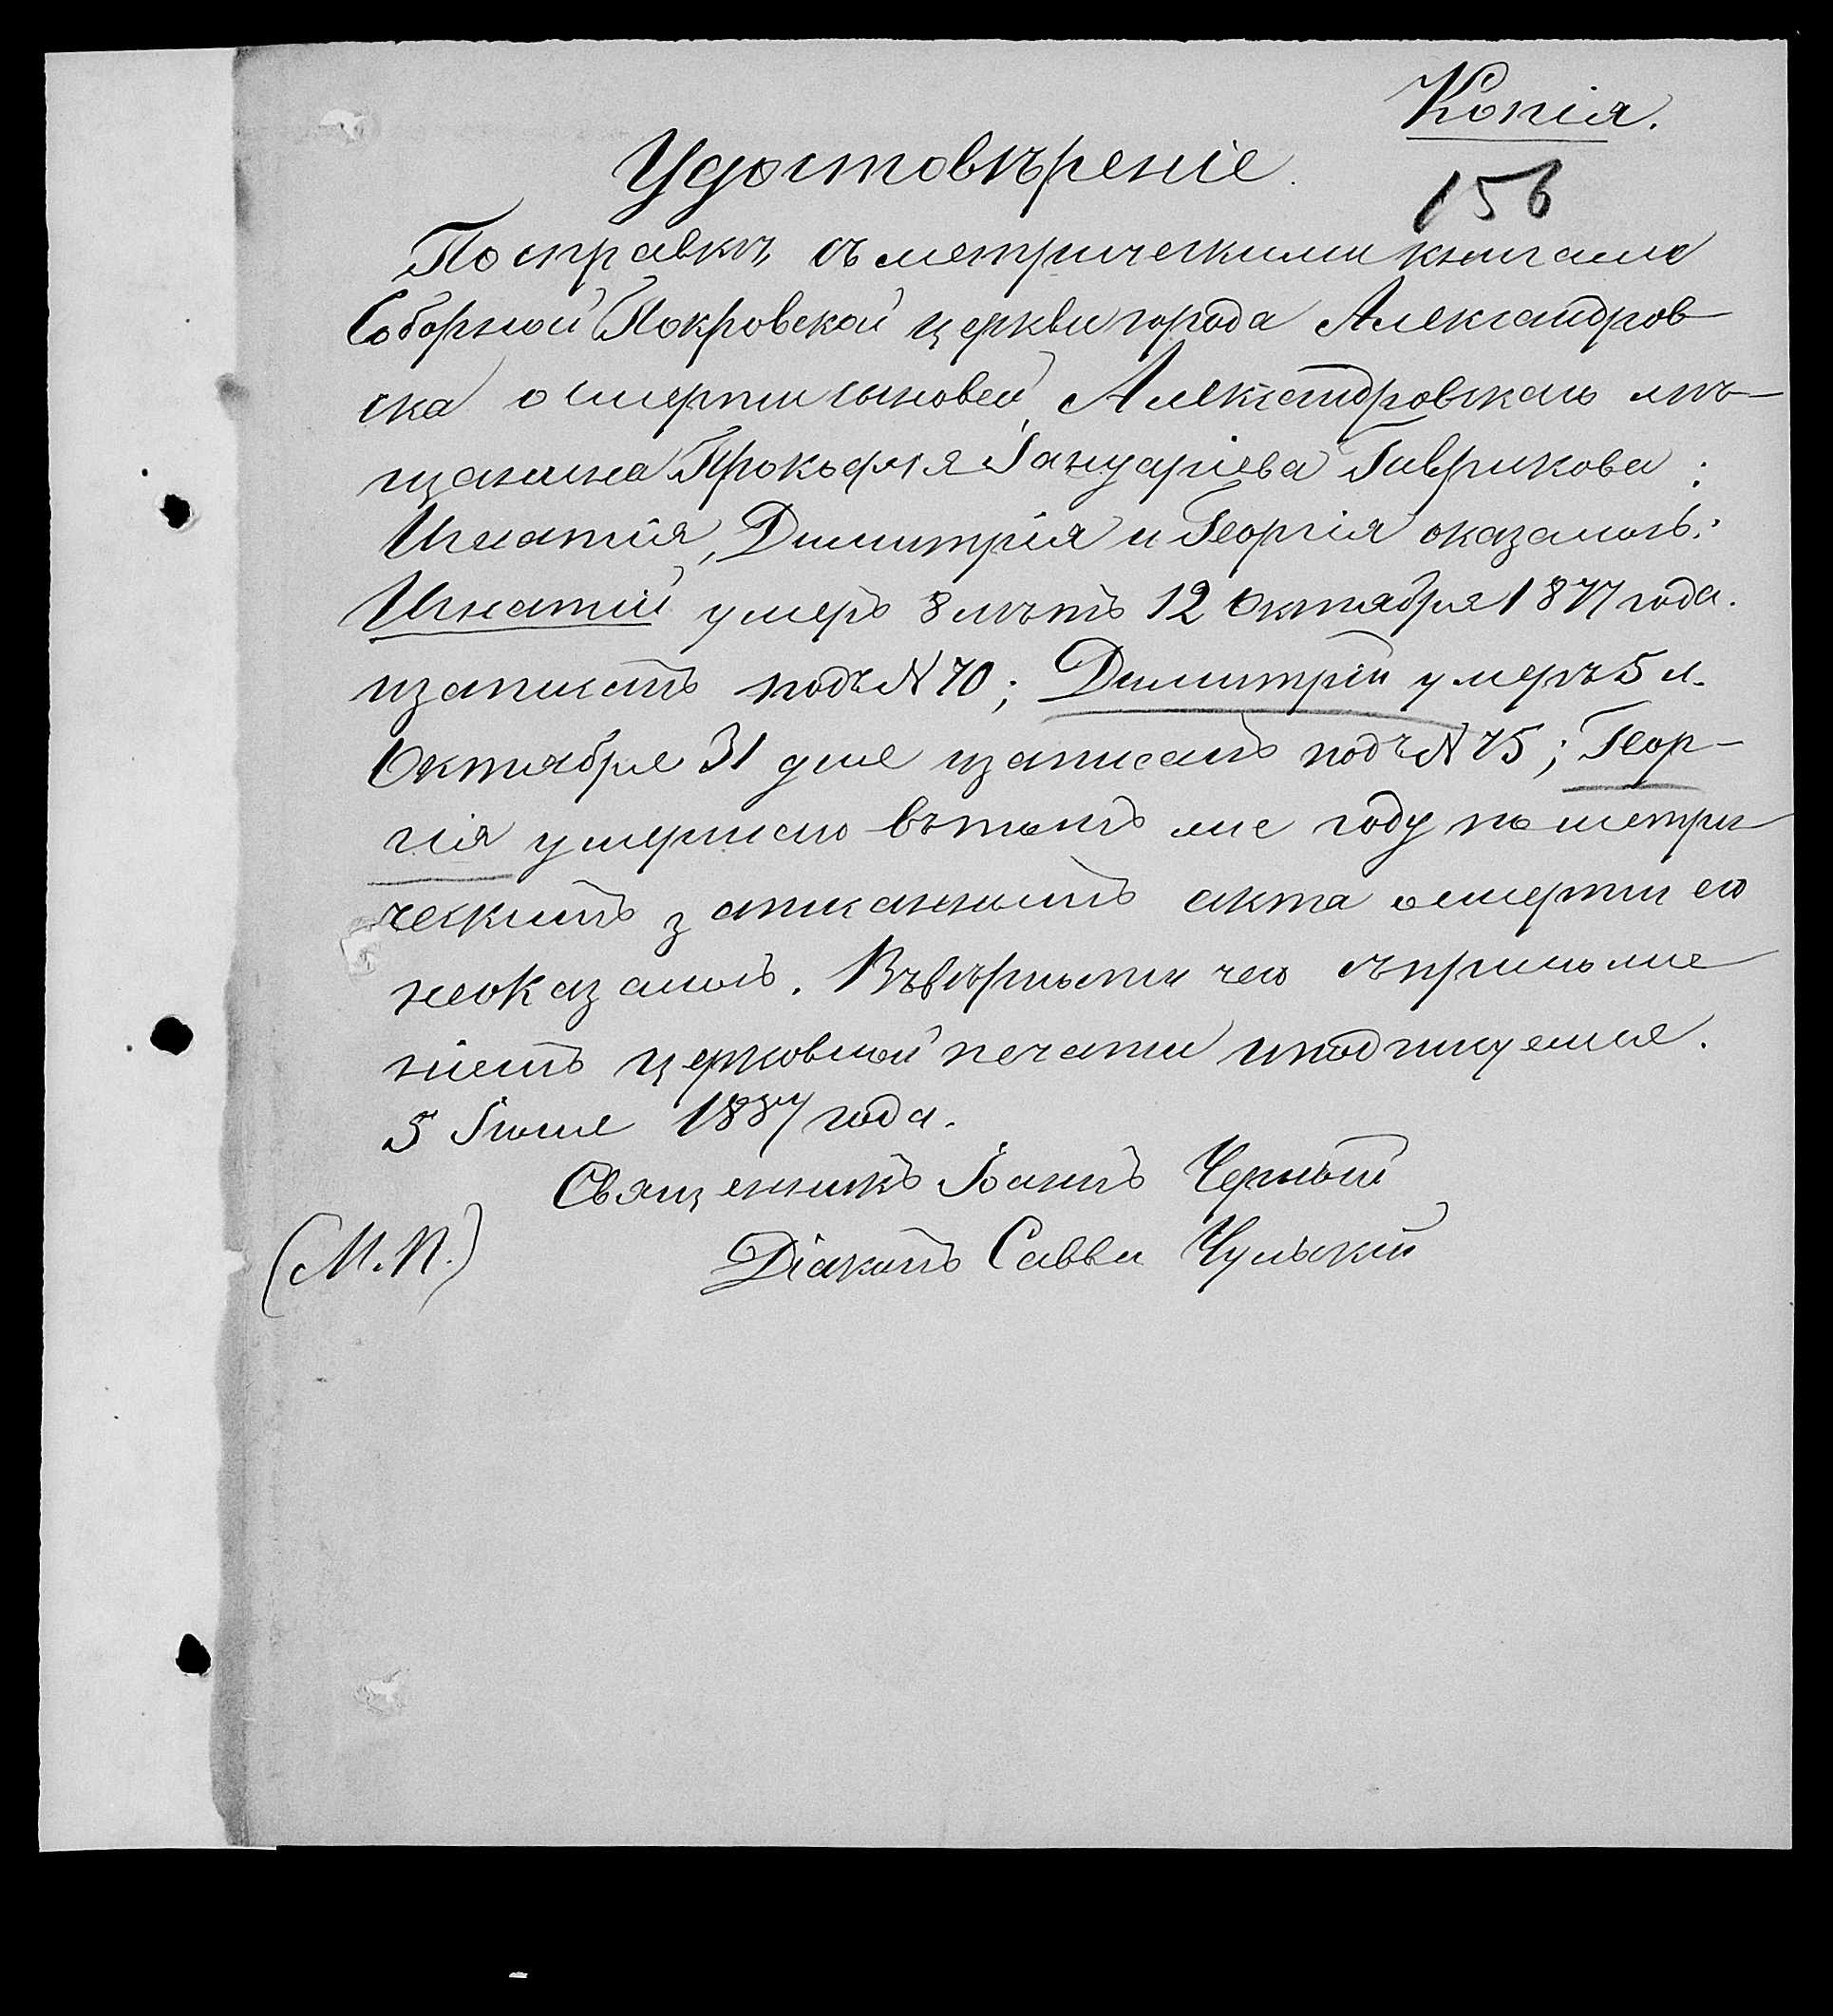 Копія.
Удостовѣреніе.
156
По справкѣ съ метрическими книгами
Соборной Покровской церкви города Александров
ска о смерти сыновей Александровскаго мѣ-
щанина Прокофія Іануаріева Гаврикова:
Игнатія, Димитрія и Георгія оказалось:
Игнатій умеръ 8 лѣтъ 12 Октября 1877 года.
и записанъ подъ N 70; Димитрій умеръ 5 л.
Октября 31 дня и записанъ подъ N 75; Геор-
гія умершаго въ томъ же году по метри
ческимъ записаннымъ акта о смерти его
не оказалось. Въ вѣрности чего съ приложе
ніемъ церковной печати и подписуемся.
5 Іюня 1887 года.
Священникъ Іоаннъ Черный
(М.П.) Діаконъ Савва Чульскій